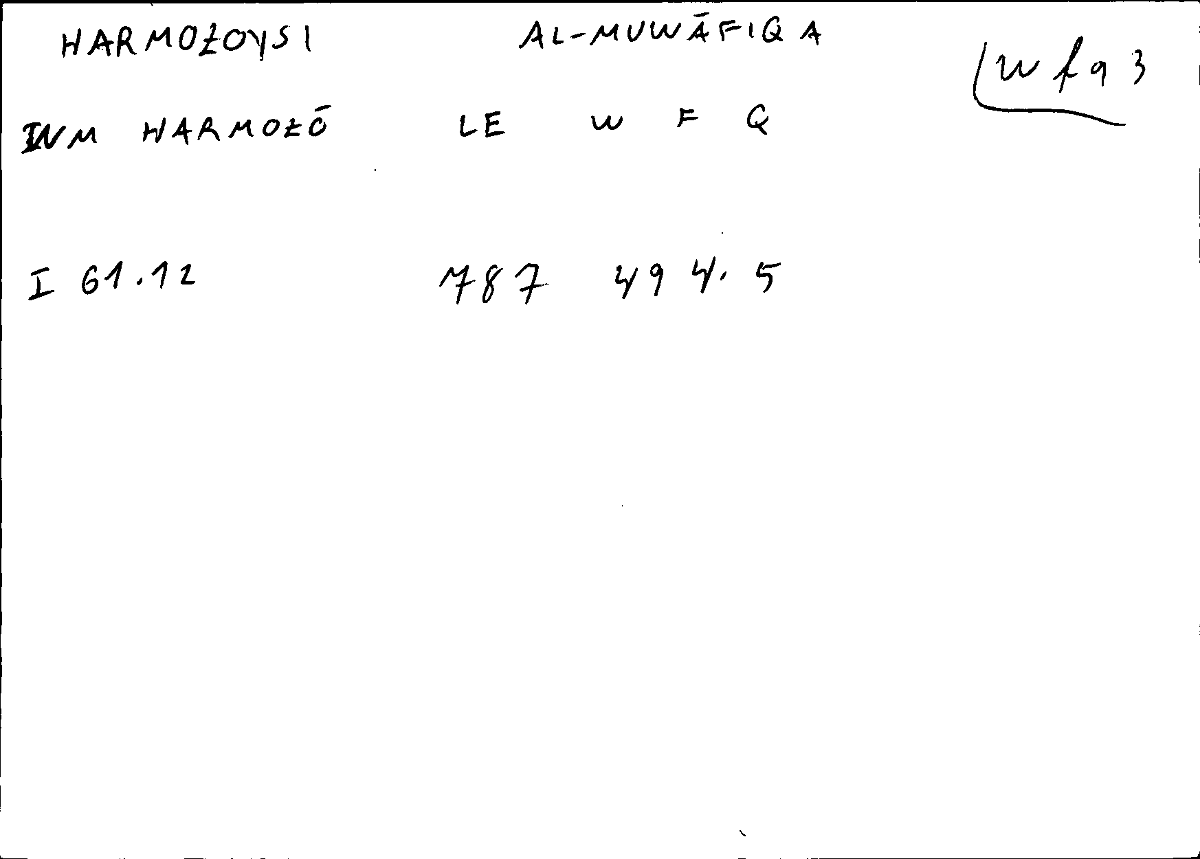 HARMOƵOYSI AL-MUWĀFIQA w f q 3
HARMOƵŌ LE W F Q
I 61.12 787 494.5